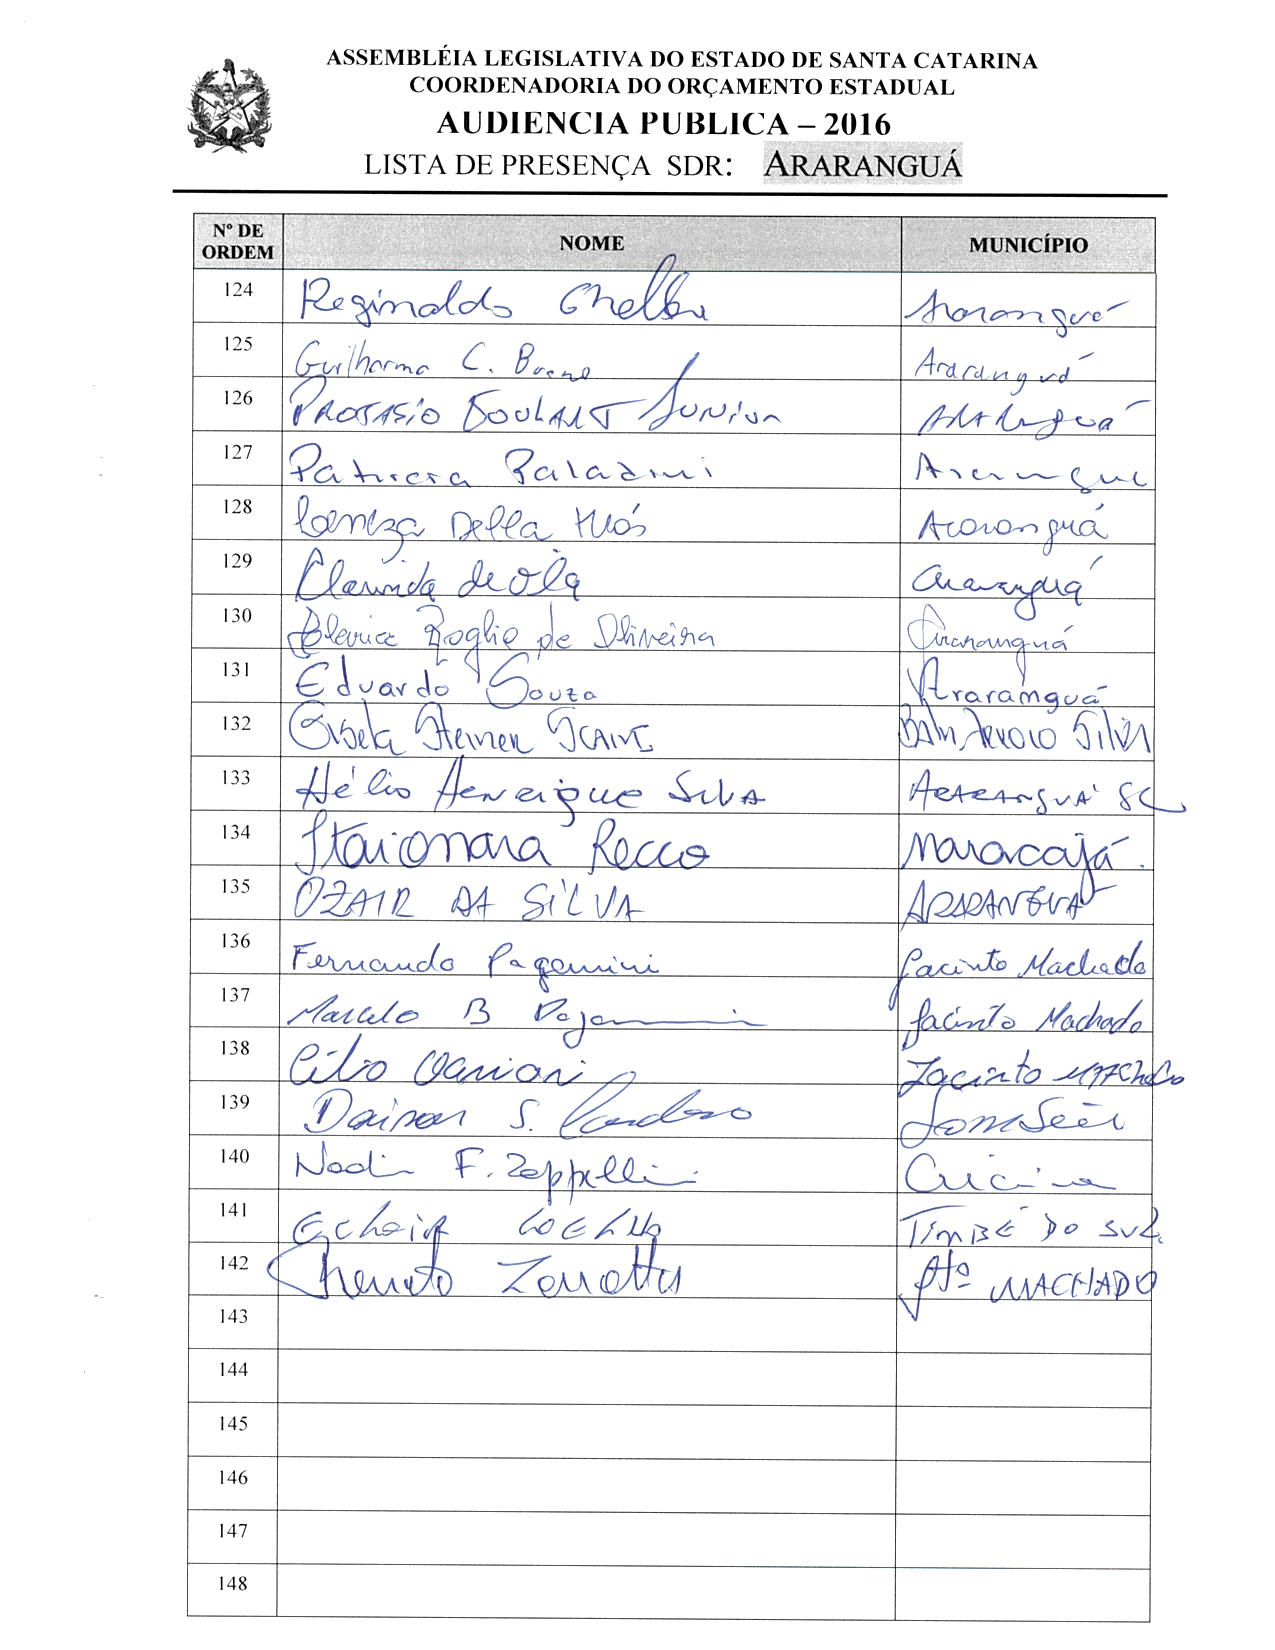 ASSEMBLÉIA LEGISLATIVA DO ESTADO DE SANTA CATARINA
COORDENADORIA DO ORÇAMENTO ESTADUAL
AUDIENCIA PUBLICA – 2016
LISTA DE PRESENÇA SDR: ARARANGUÁ
Nº DE ORDEM NOME MUNICÍPIO
124 Reginaldo Araranguá
125 Guilherme C. Araranguá
126 PROTASIO GOULART JUNIOR Araranguá
127 Patricia
128 Della Araranguá
129 Clarinda de Araranguá
130 Roglio de Oliveira Araranguá
131 Eduardo Souza Araranguá
132 Gisela Steiner BAL. ARROIO SILVA
133 Hélio Henrique SILVA ARARANGUÁ SC
134 Itaionara Recco Maracajá.
135 OZAIR DA SILVA ARARANGUÁ
136 Fernando Pagamini Jacinto Machado
137 Marcelo B Jacinto Machado
138 Jacinto MACHADO
139 S. Cardoso
140 F. Zappellini
141 COELHO TIMBÉ DO SUL
142 MACHADO
143
144
145
146
147
148